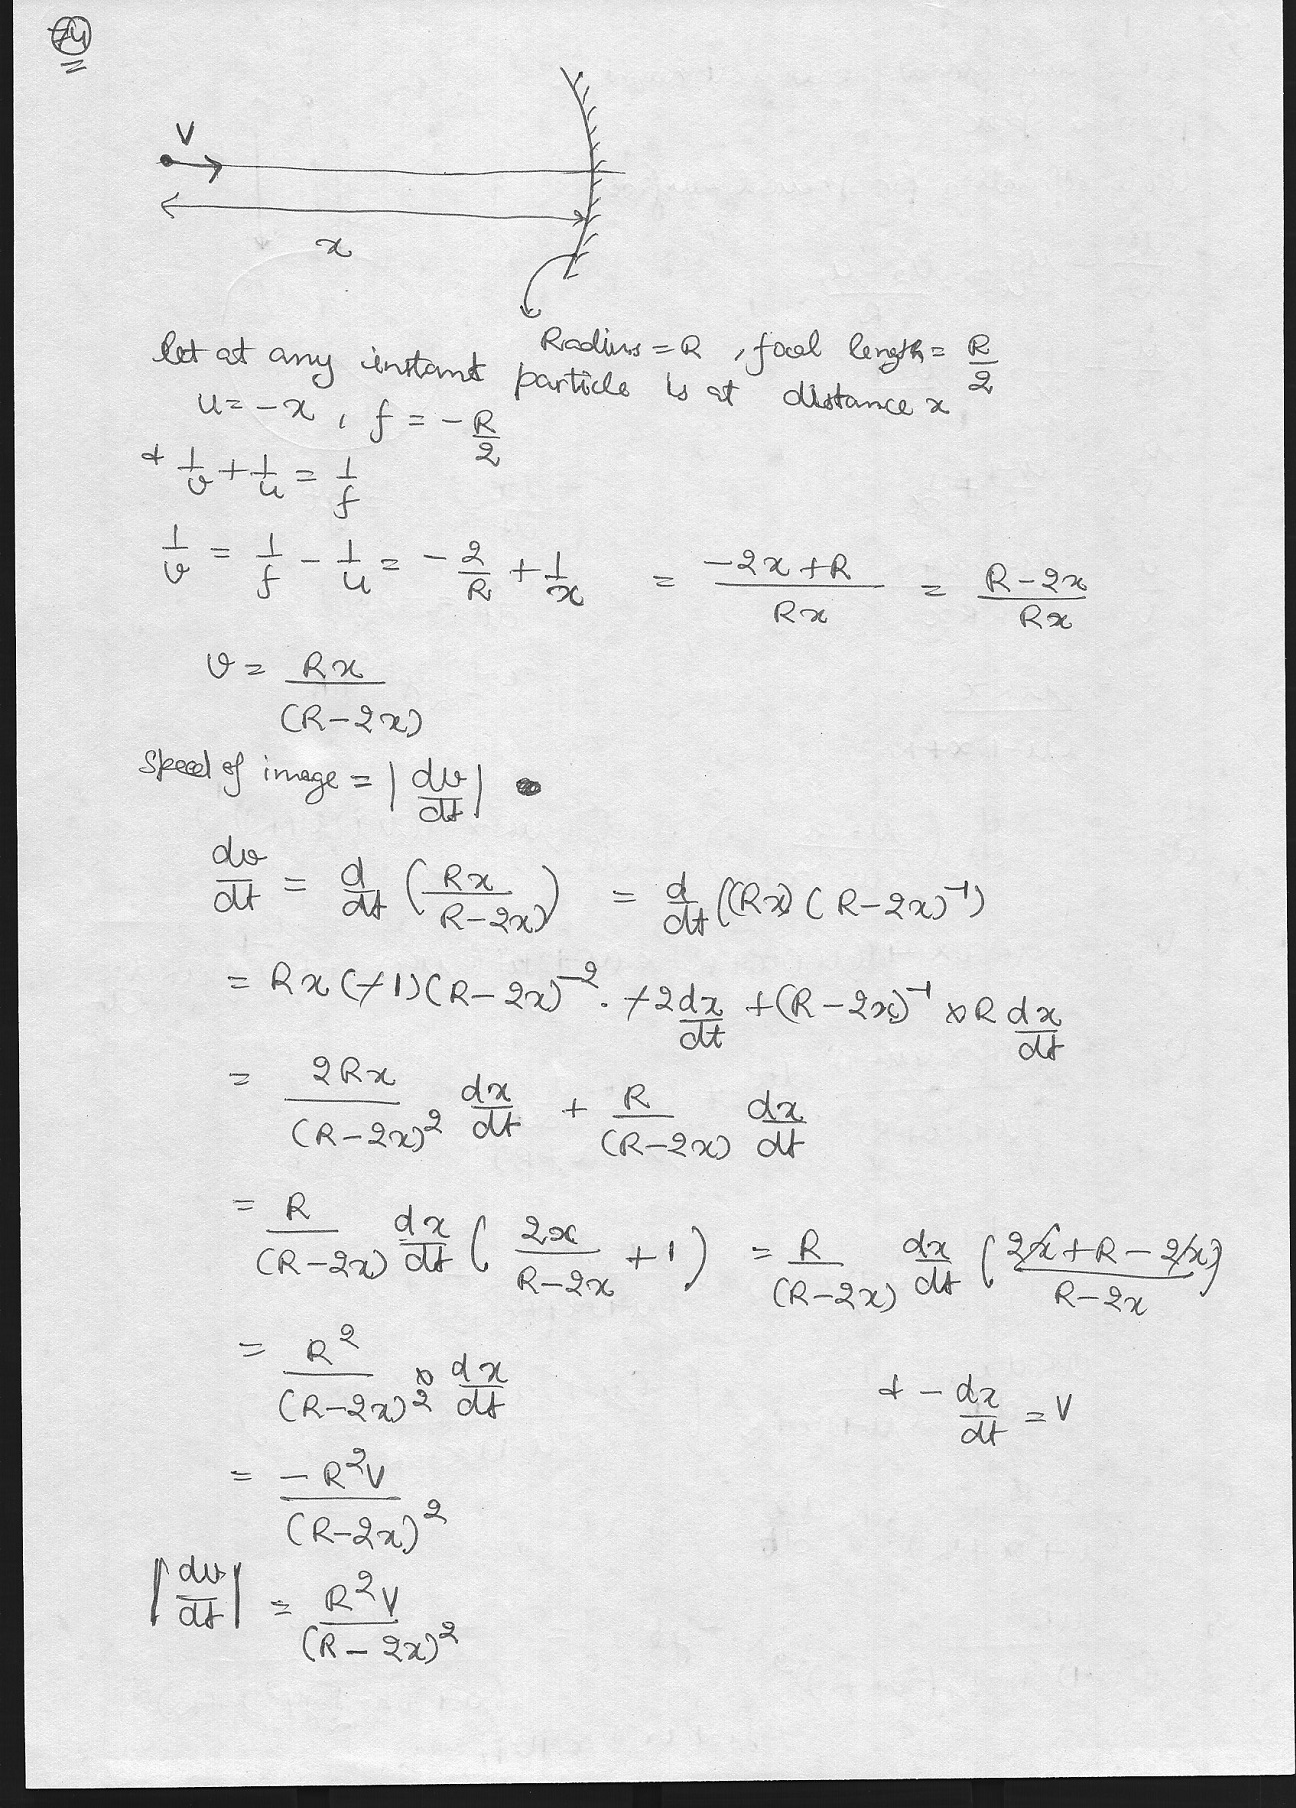 74
V
x
Radius = R , focal length = R/2
let at any instant particle is at distance x
u = -x , f = -R/2
& 1/v + 1/u = 1/f
1/v = 1/f - 1/u = -2/R + 1/x = (-2x+R)/(Rx) = (R-2x)/(Rx)
v = Rx/(R-2x)
Speed of image = |dv/dt|
dv/dt = d/dt (Rx/(R-2x)) = d/dt ((Rx)(R-2x)^-1)
= Rx(-1)(R-2x)^-2 . -2 dx/dt + (R-2x)^-1 × R dx/dt
= 2Rx/(R-2x)^2 dx/dt + R/(R-2x) dx/dt
= R/(R-2x) dx/dt (2x/(R-2x) + 1) = R/(R-2x) dx/dt ((2x+R-2x)/(R-2x))
= R^2/(R-2x)^2 × dx/dt & -dx/dt = V
= -R^2V/(R-2x)^2
|dv/dt| = R^2V/(R-2x)^2